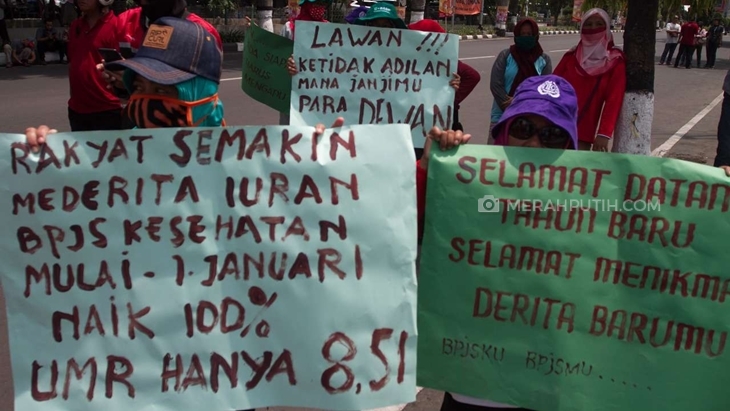 LAWAN !!!
KETIDAK ADILAN
MANA JANJIMU
PARA DEWAN
RAKYAT SEMAKIN
MEDERITA IURAN
BPJS KESEHATAN
MULAI - 1. JANUARI
NAIK 100%
UMR HANYA 8,51
SELAMAT DATAN
TAHUN BARU
SELAMAT MENIKMA
DERITA BARUMU
BPJSKU BPJSMU.....
MERAHPUTIH.COM